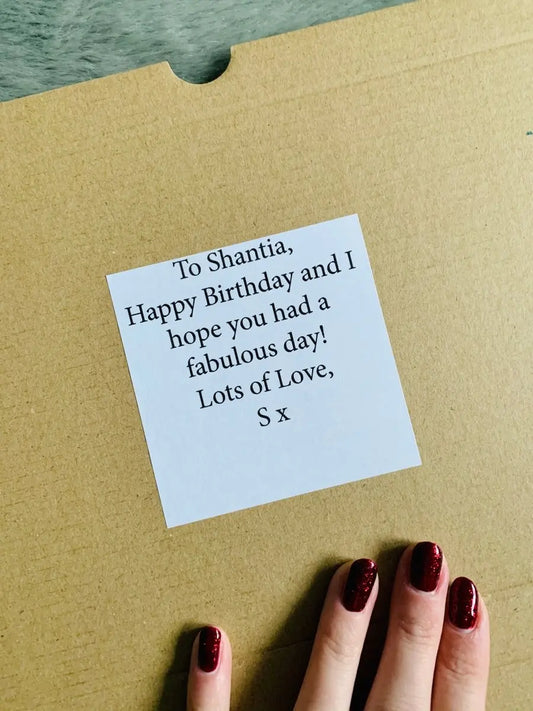 To Shantia,
Happy Birthday and I
hope you had a
fabulous day!
Lots of Love,
S x